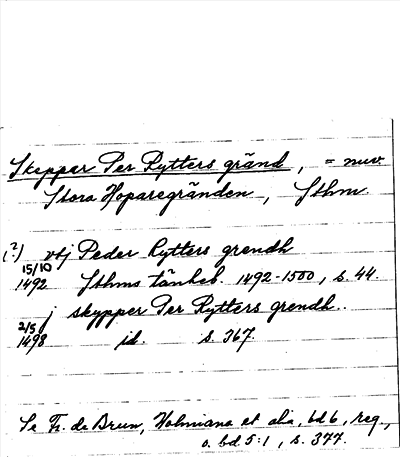 Skeppar Per Rytters gränd, = nuv.
Stora Hoparegränden, Sthm.
(?) vtj Peder Rytters grendh
15/10
1492 Sthms tänkeb. 1492-1500, s. 44.
j skypper Per Rytters grendh.
2/5
1498 id. s. 367.
Se Fr. de Brun, Holmiana et alia, bd 6, reg.,
o. bd 5:1, s. 377.